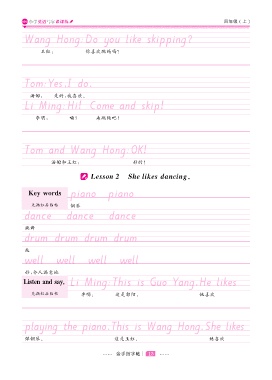 四年级（上）
Wang Hong: Do you like skipping?
王红： 你喜欢跳绳吗？
Tom: Yes, I do.
汤姆： 是的，我喜欢。
Li Ming: Hi! Come and skip!
李明： 嗨！ 来跳绳吧！
Tom and Wang Hong: OK!
汤姆和王红： 好的！
Lesson 2 She likes dancing.
Key words piano piano
先描红后临帖 钢琴
dance dance dance
跳舞
drum drum drum drum
鼓
well well well well
Listen and say. Li Ming: This is Guo Yang. He likes
先描红后临帖 李明： 这是郭阳。 他喜欢
playing the piano. This is Wang Hong. She likes
弹钢琴。 这是王红。 她喜欢